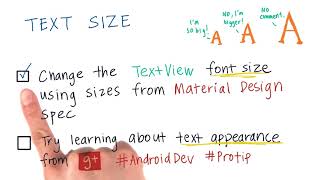 TEXT SIZE
I'm so big!
NO, I'm bigger!
NO comment.
A A A
Change the TextView font size
using sizes from Material Design
spec
Try learning about text appearance
from g+ #AndroidDev #Protip